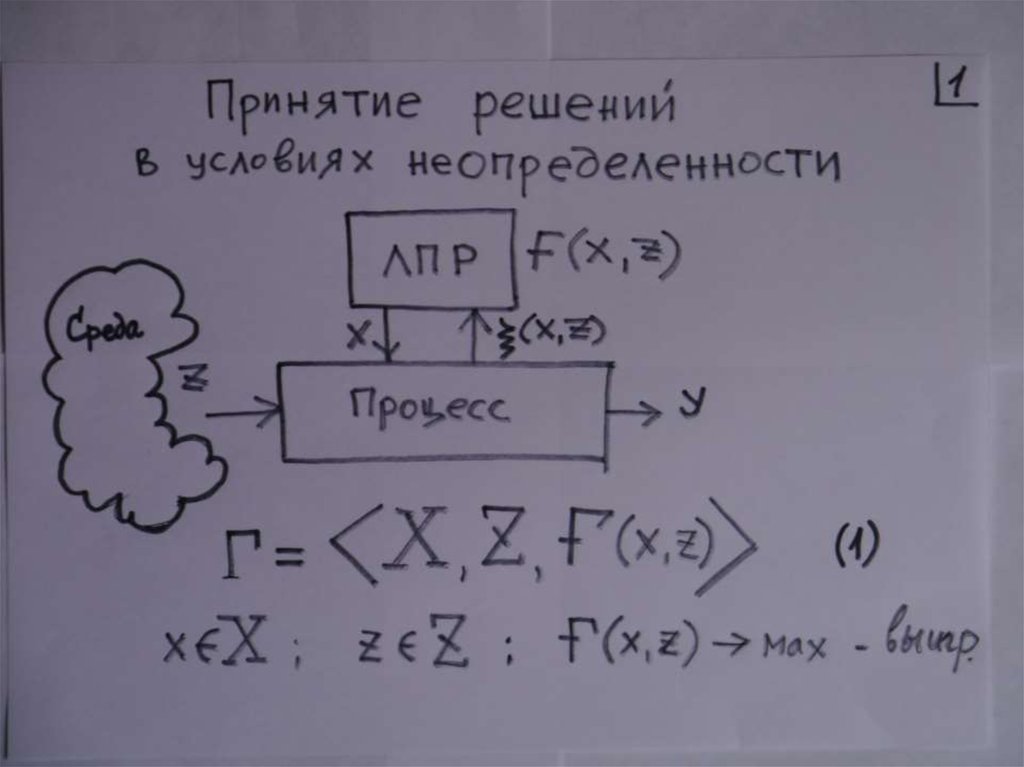 1
Принятие решений
в условиях неопределенности
ЛПР F(x,z)
Среда
x ξ(x,z)
z
Процесс
y
Γ = <X, Z, F(x,z)> (1)
x∈X ; z∈Z ; F(x,z) → max - выигр.